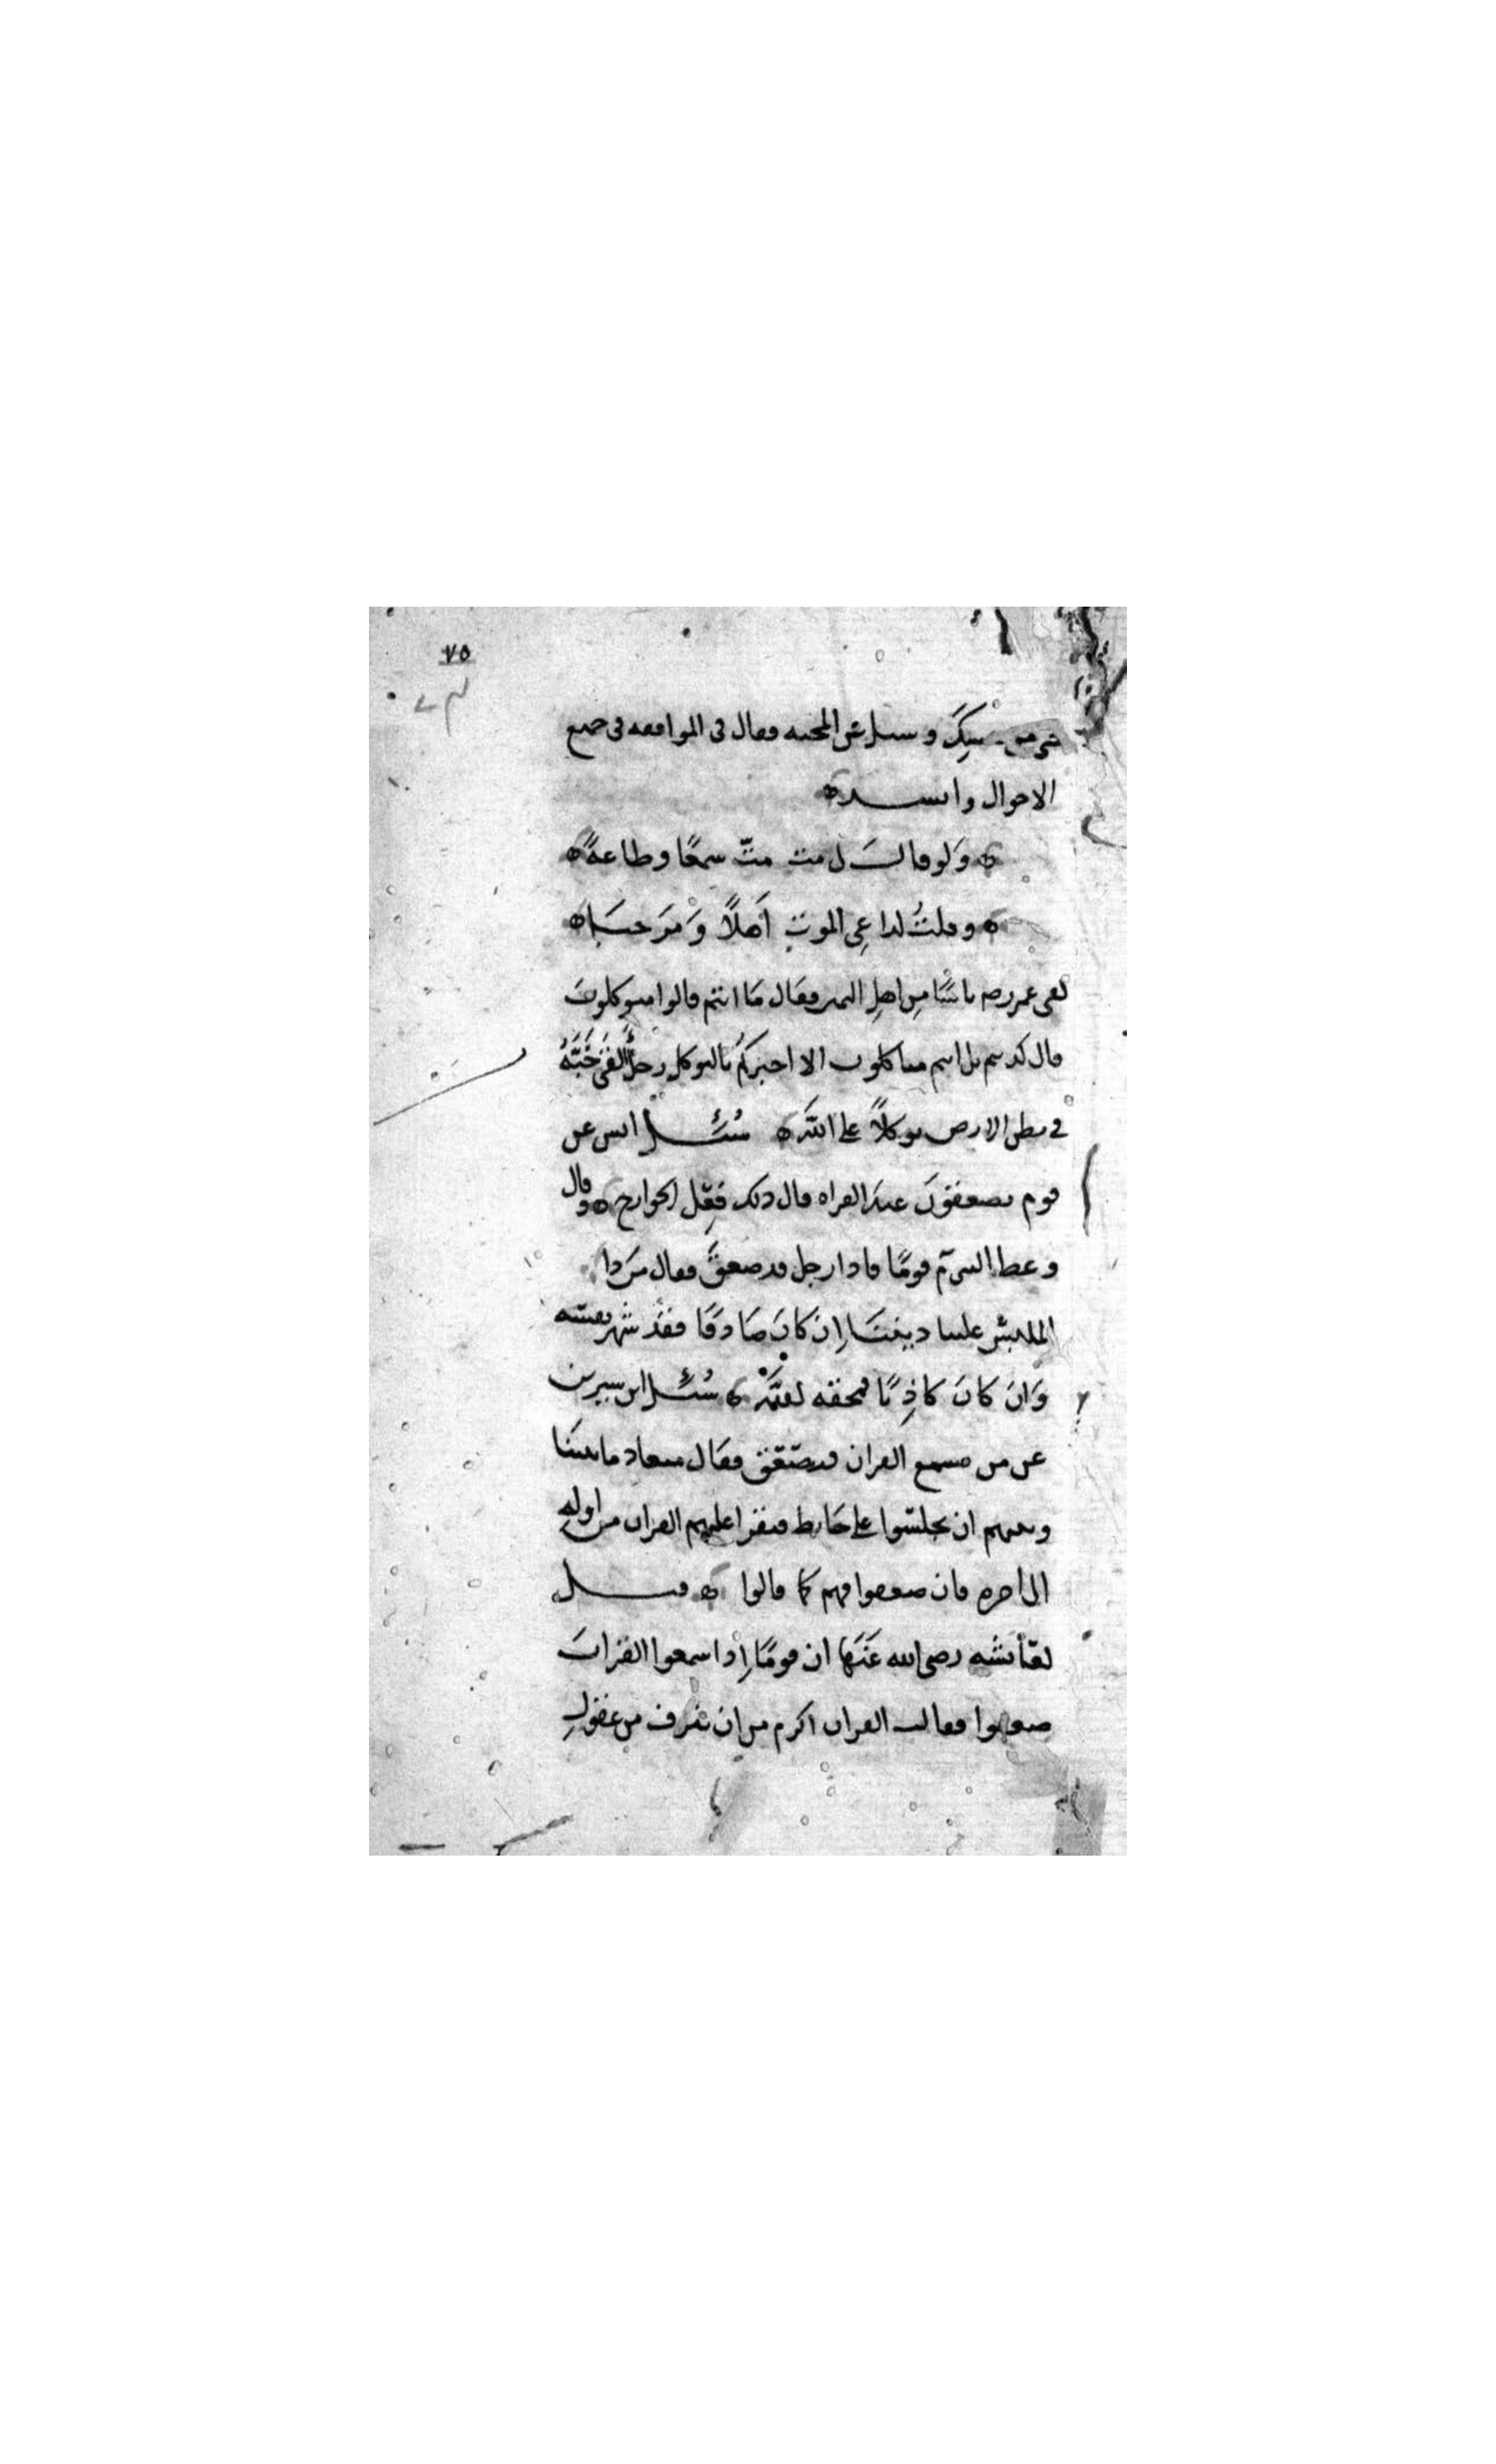 ٧٥
وسئل عن المحبه فقال فى الموافقه فى جميع
الاحوال وانشد
ولو قال لى مت متّ سمعًا وطاعةً
وقلتُ لداعِى الموتِ أَهلًا وَمَرحبَا
لقى عمر رضه ناسًا مِن اهلِ اليمن فقَال مَا انتم قالوا متوكلونَ
قال كذبتم بل انتم متاكلون الا اخبركُم بالمتوكل رجلٌ القَى حَبَّهُ
فى بطن الارض توكلاً على الله سُئِل انس عن
قوم يصعقونَ عندَ القراه قال ذلك فِعْل الخوارج وقال
وعظ النبى م قومًا فاذا رجل قد صعقَ فقال مَن ذا
الملبّس علينا دينَنَا اِن كانَ صَادقًا فقَد شهر نفسَه
وَانَ كانَ كاذِبًا فمحقه اللهُ سُئِل ابن سيرين
عن من يسمع القران فيصعَق فقَال ميعاد ما بيننا
وبينهم ان يجلسوا على حَايط فيقرا عليهم القران من اولِهِ
الى اخره فان صعقوا فهم كما قالوا قيل
لعَائشه رضى الله عَنَها ان قومًا اِذا سمعوا القرانَ
صعقوا فقالت القران اكرم من ان ينزف من عقولِ